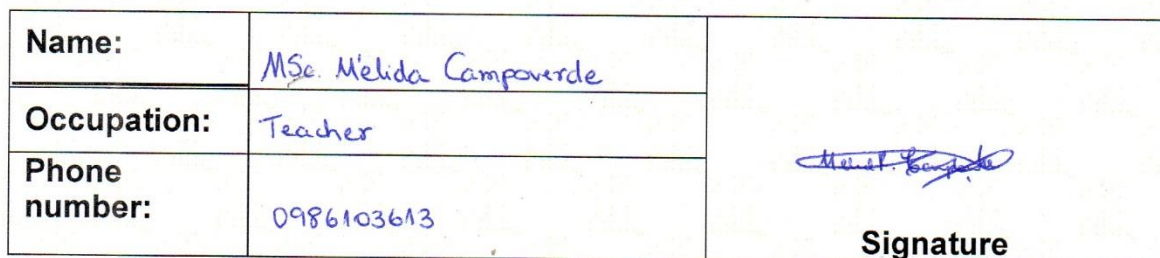 Name:
MSc. Mélida Campoverde
Occupation:
Teacher
Phone
number:
0986103613
Signature